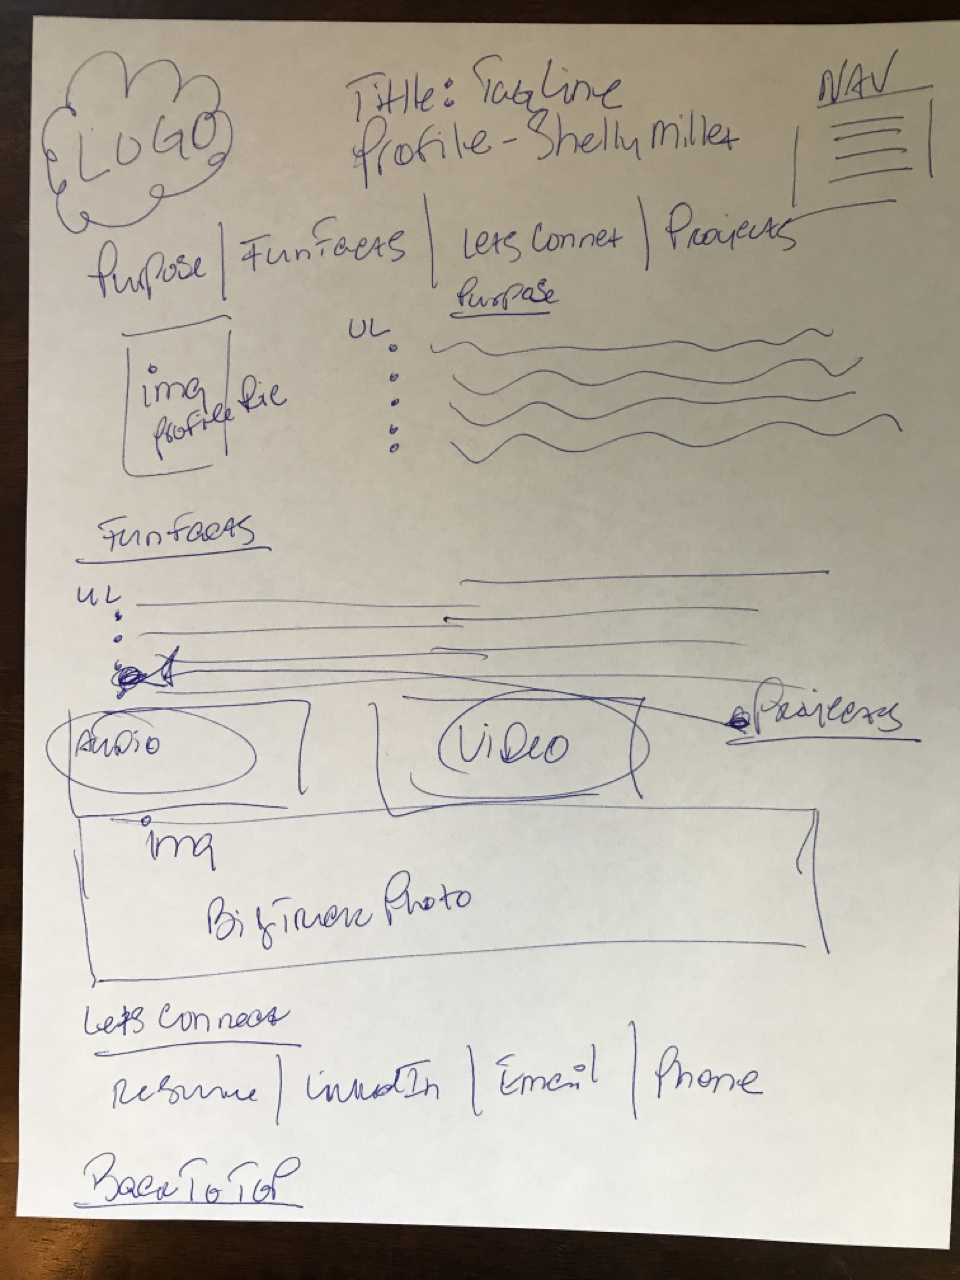 LOGO
Tittle: TagLine
NAV
Profile - Shelly Miller
Purpose | FunFacts | Lets Connet | Projects
Purpose
UL
img
Profile Pic
FunFacts
UL
Projects
Audio
Video
img
Big Truck Photo
Lets Connect
Resume | LinkedIn | Email | Phone
Back To Top